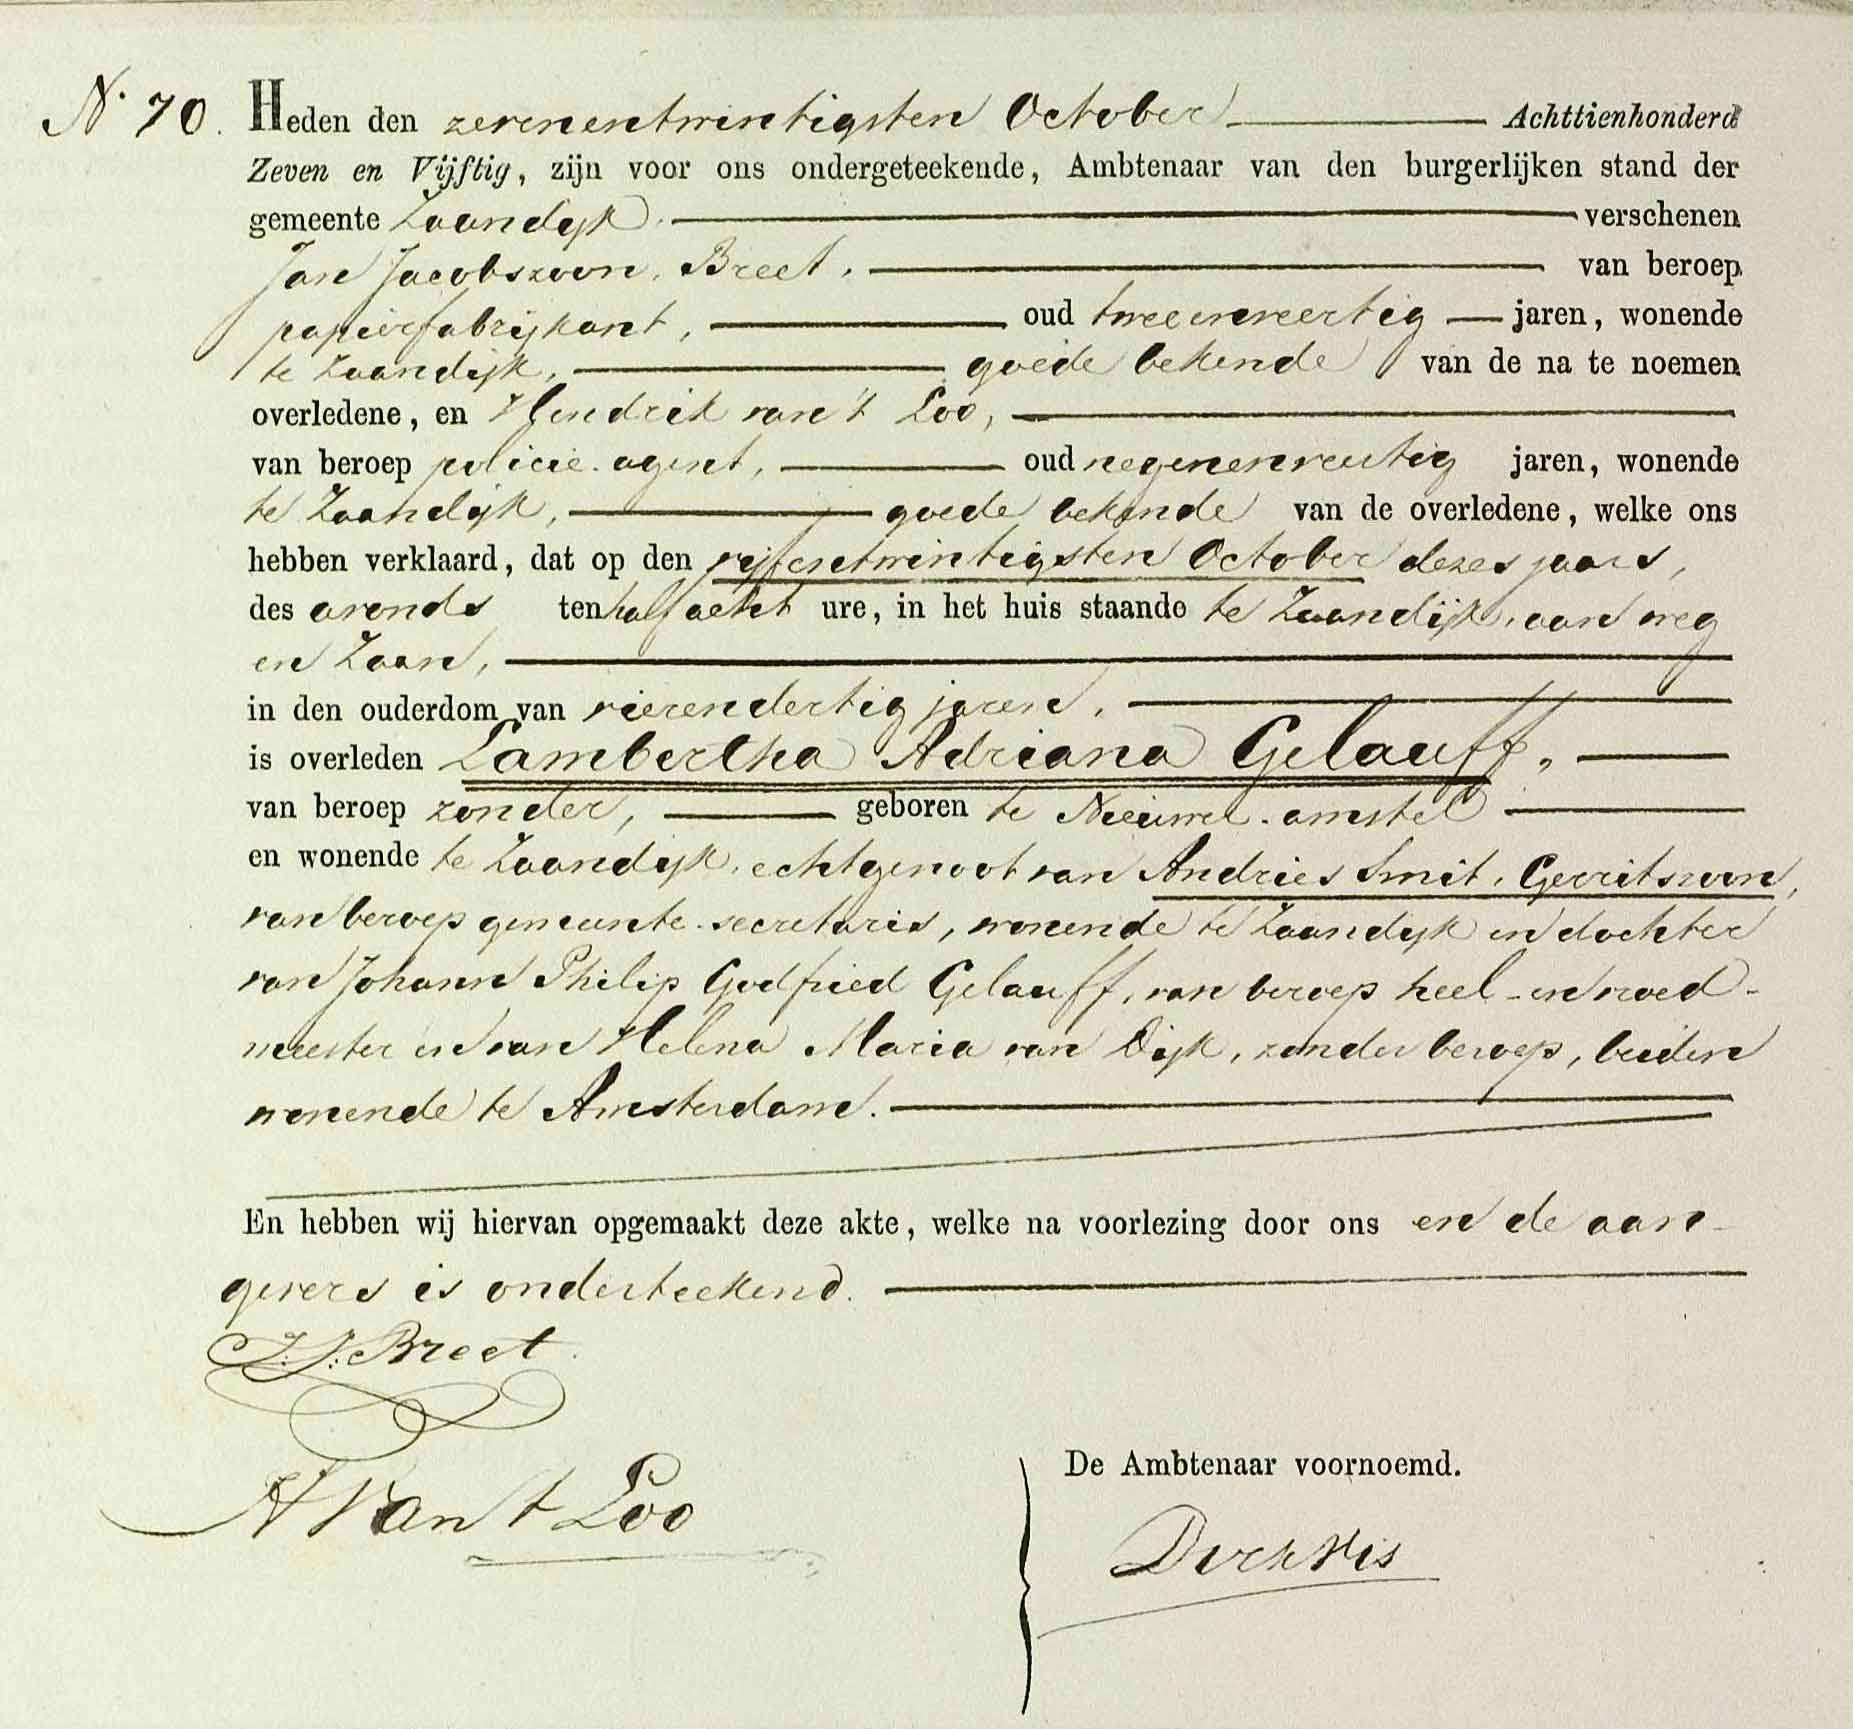 N. 70. Heden den zevenentwintigsten October Achttienhonderd
Zeven en Vijftig, zijn voor ons ondergeteekende, Ambtenaar van den burgerlijken stand der
gemeente Zaandijk verschenen
Jan Jacobszoon Breet, van beroep
papierfabrijkant, oud tweeenveertig jaren, wonende
te Zaandijk, goede bekende van de na te noemen
overledene, en Hendrik van 't Loo,
van beroep policie-agent, oud negenenveertig jaren, wonende
te Zaandijk, goede bekende van de overledene, welke ons
hebben verklaard, dat op den vijfentwintigsten October dezes jaars,
des avonds ten half acht ure, in het huis staande te Zaandijk, aan weg
en Zaan,
in den ouderdom van vierendertig jaren,
is overleden Lambertha Adriana Gelauff,
van beroep zonder, geboren te Nieuwer-amstel
en wonende te Zaandijk, echtgenoot van Andries Smit, Gerritszoon,
van beroep gemeente-secretaris, wonende te Zaandijk en dochter
van Johann Philip Godfried Gelauff, van beroep heel- en vroed-
meester en van Helena Maria van Dijk, zonder beroep, beiden
wonende te Amsterdam.
En hebben wij hiervan opgemaakt deze akte, welke na voorlezing door ons en de aan-
gevers is onderteekend.
J. J. Breet
H van t Loo
De Ambtenaar voornoemd.
Dirk Vis